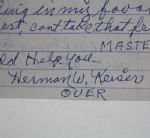 ing in my favor
est, cant take that fr
MASTE
God Help You
Herman W. Keiser
OVER